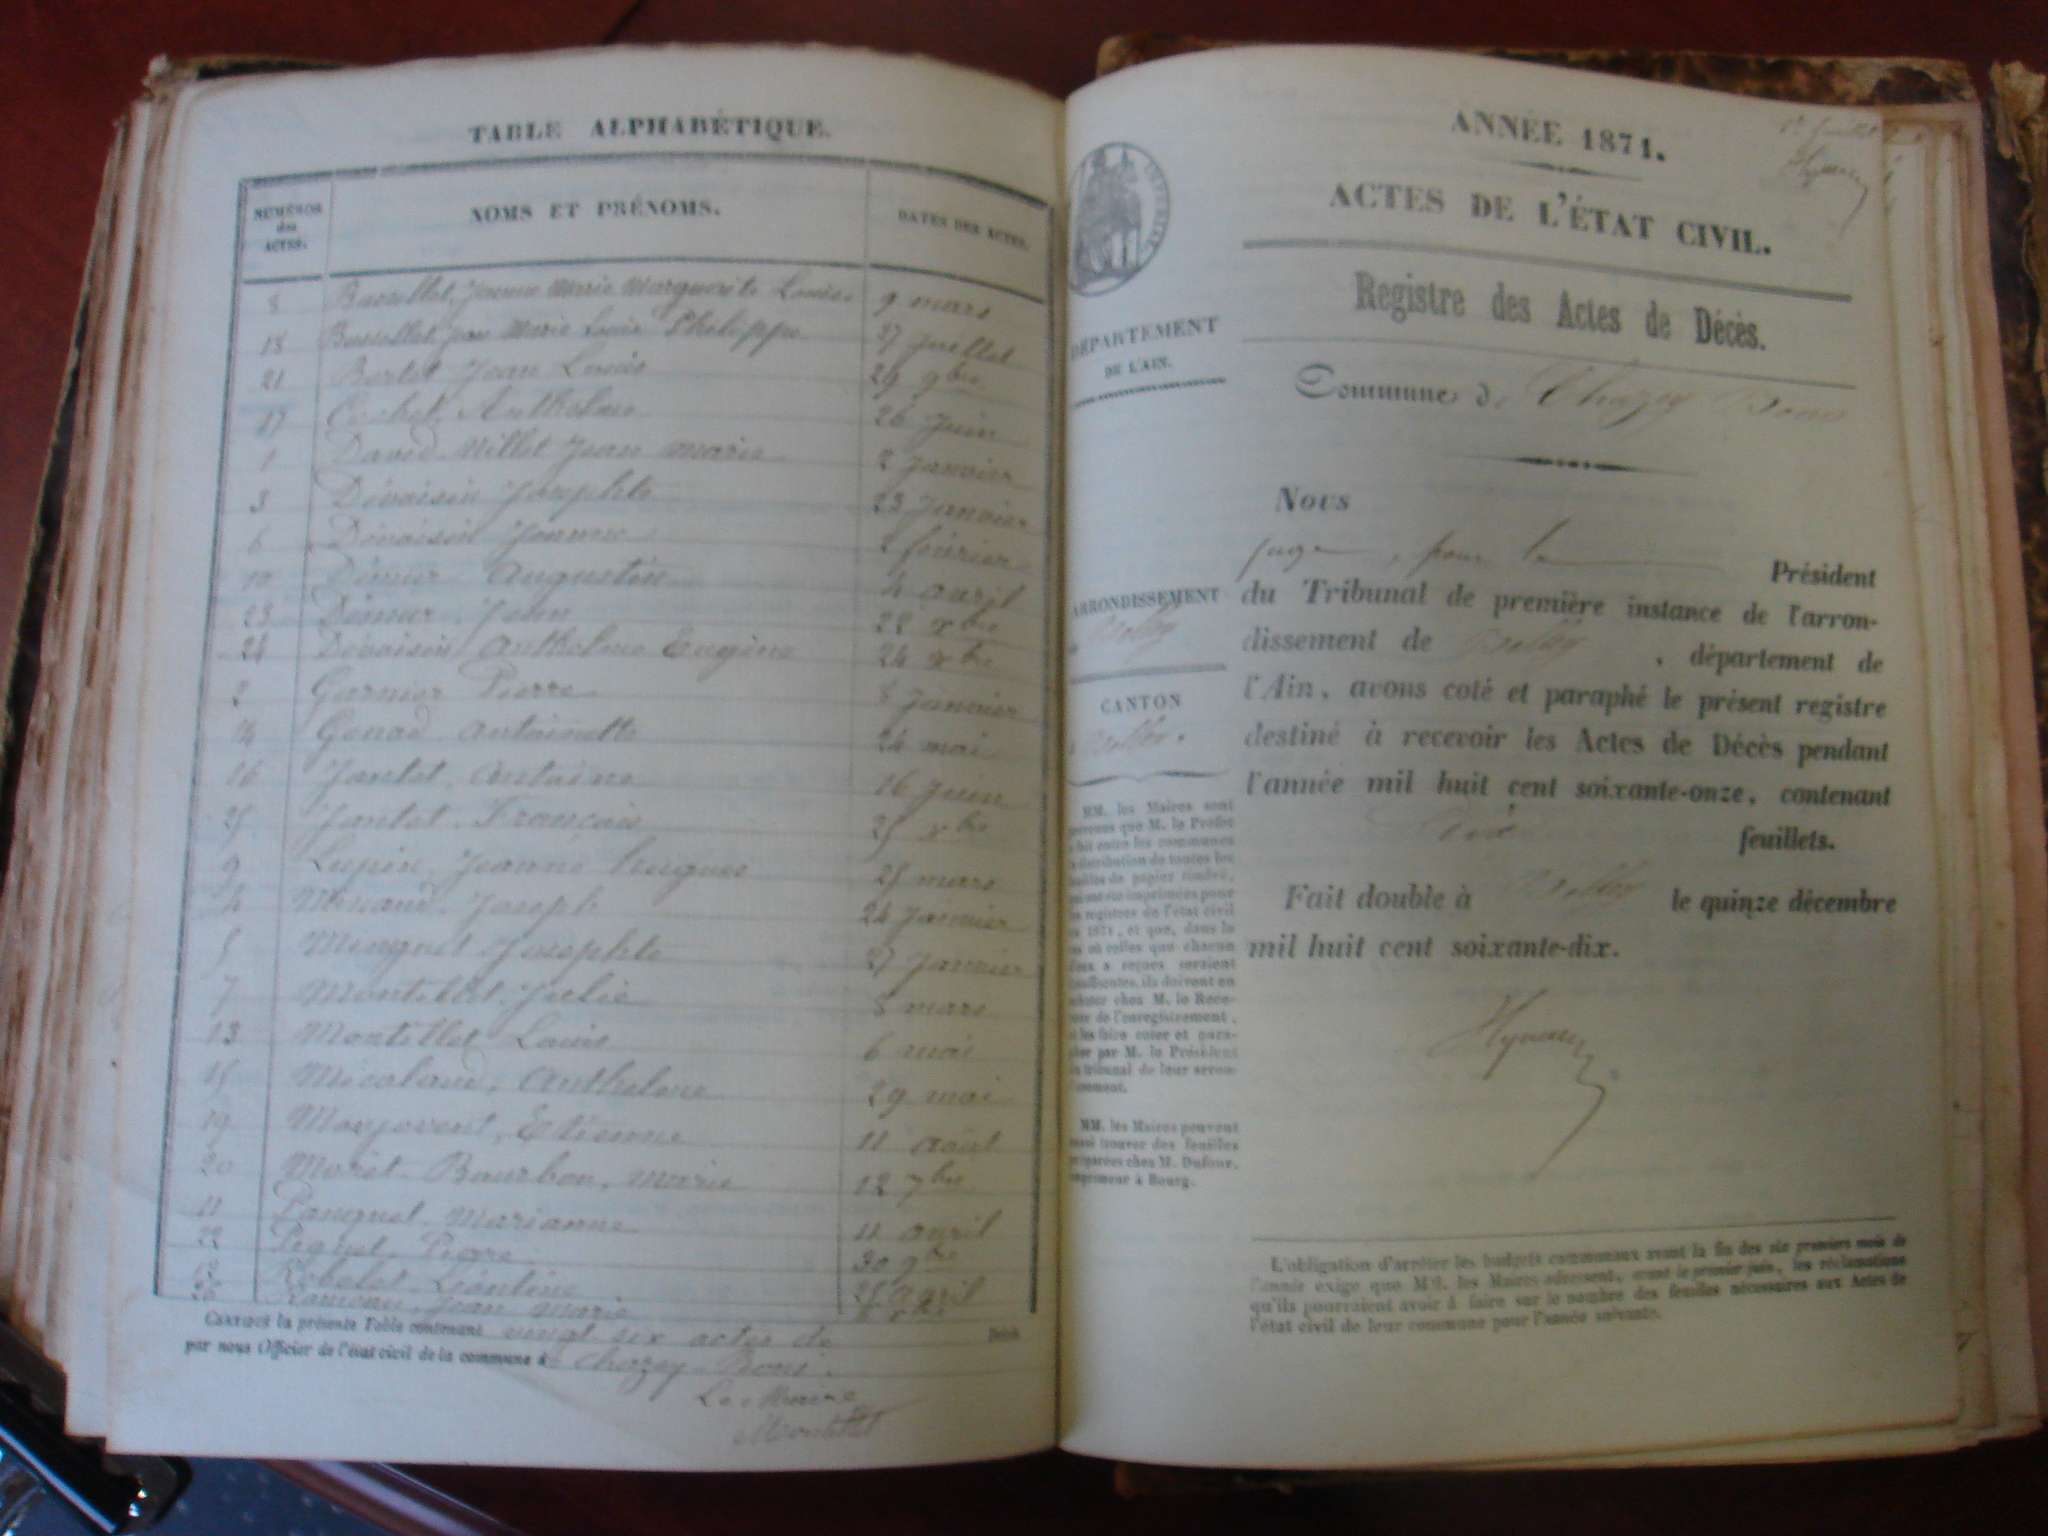 TABLE ALPHABÉTIQUE.
NUMÉROS des ACTES. NOMS ET PRÉNOMS. DATES DES ACTES.
8 Jeanne Marie Marguerite Louise 9 mars
18 Marie Louis Philippe 27 juillet
21 Bertet Jean Louis 29 9bre
17 Cochet, Anthelme 26 juin
1 David-Millet Jean Marie 2 janvier
3 Dévoisin Josephte 23 janvier
6 Dévoisin Jeanne 2 février
10 Augustin 4 avril
23 Jean 22 xbre
24 Dévoisin Anthelme Eugène 24 xbre
2 Garnier Pierre 8 janvier
14 Antoinette 24 mai
16 Jantet, Antoine 16 juin
25 Jantet, François 25 xbre
9 Lupin, Jeanne 25 mars
4 Joseph 24 janvier
5 Minguet Josephte 27 janvier
7 Montillet, Julie 8 mars
13 Montillet Louis 6 mai
15 Micaland, Anthelme 29 mai
19 Etienne 11 août
20 Moret-Bourbon, Marie 12 7bre
11 Marianne 11 avril
22 Pierre 30 9bre
12 Léontine 25 avril
26 Jean Marie
CERTIFIÉ la présente Table contenant vingt six actes de Décès
par nous Officier de l'état civil de la commune de Chazey-Bons.
Le Maire
Montillet
ANNÉE 1871.
ACTES DE L'ÉTAT CIVIL.
Registre des Actes de Décès.
Commune de Chazey Bons
DÉPARTEMENT
DE L'AIN.
ARRONDISSEMENT
Belley
CANTON
Belley.
MM. les Maires sont
prévenus que M. le Préfet
a fait entre les communes
la distribution de toutes les
feuilles de papier timbré,
qui ont été imprimées pour
les registres de l'état civil
de 1871, et que, dans le
cas où celles que chacun
d'eux a reçues seraient
insuffisantes, ils doivent en
acheter chez M. le Rece-
veur de l'enregistrement,
et les faire coter et para-
pher par M. le Président
du tribunal de leur arron-
dissement.
MM. les Maires peuvent
aussi trouver des feuilles
préparées chez M. Dufour,
imprimeur à Bourg.
Nous
juge, pour le Président
du Tribunal de première instance de l'arron-
dissement de Belley, département de
l'Ain, avons coté et paraphé le présent registre
destiné à recevoir les Actes de Décès pendant
l'année mil huit cent soixante-onze, contenant
feuillets.
Fait double à Belley le quinze décembre
mil huit cent soixante-dix.
L'obligation d'arrêter les budgets communaux avant la fin des six premiers mois de
l'année exige que MM. les Maires adressent, avant le premier juin, les réclamations
qu'ils pourraient avoir à faire sur le nombre des feuilles nécessaires aux Actes de
l'état civil de leur commune pour l'année suivante.